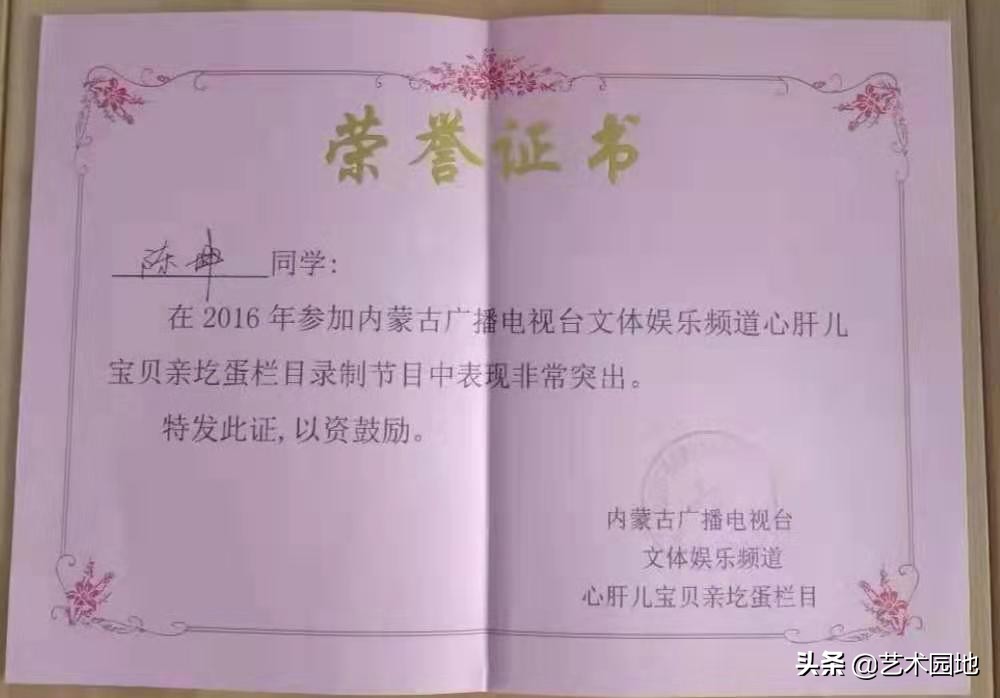 荣誉证书
陈坤 同学:
在2016年参加内蒙古广播电视台文体娱乐频道心肝儿
宝贝亲圪蛋栏目录制节目中表现非常突出。
特发此证,以资鼓励。
内蒙古广播电视台
文体娱乐频道
心肝儿宝贝亲圪蛋栏目
头条 @艺术园地